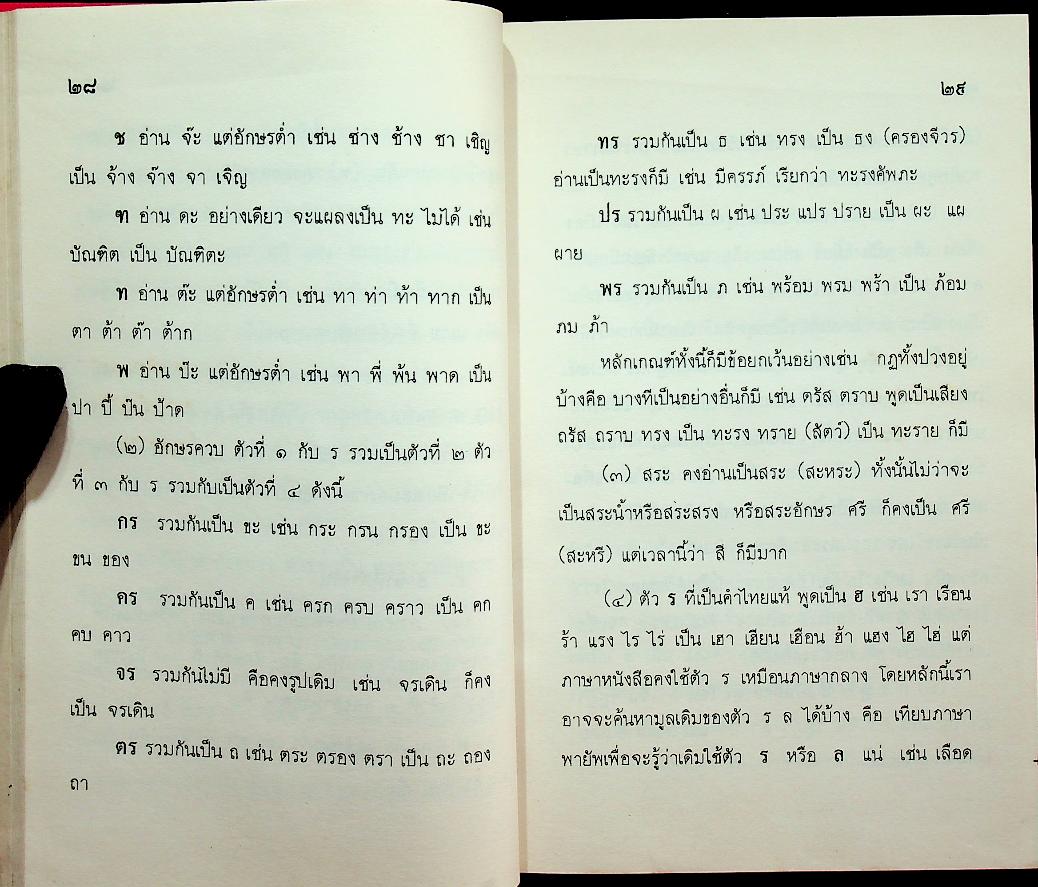 ๒๘
ช อ่าน จ๊ะ แต่อักษรต่ำ เช่น ช่าง ช้าง ชา เชิญ
เป็น จ้าง จ๊าง จา เจิญ
ฑ อ่าน ดะ อย่างเดียว จะแผลงเป็น ทะ ไม่ได้ เช่น
บัณฑิต เป็น บัณฑิตะ
ท อ่าน ต๊ะ แต่อักษรต่ำ เช่น ทา ท่า ท้า ทาก เป็น
ตา ต้า ต๊า ต้าก
พ อ่าน ป๊ะ แต่อักษรต่ำ เช่น พา พี่ พ้น พาด เป็น
ปา ปี้ ป๊น ป้าด
(๒) อักษรควบ ตัวที่ ๑ กับ ร รวมเป็นตัวที่ ๒ ตัว
ที่ ๓ กับ ร รวมกับเป็นตัวที่ ๔ ดังนี้
กร รวมกันเป็น ขะ เช่น กระ กรน กรอง เป็น ขะ
ขน ของ
คร รวมกันเป็น ค เช่น ครก ครบ คราว เป็น คก
คบ คาว
จร รวมกันไม่มี คือคงรูปเดิม เช่น จรเดิน ก็คง
เป็น จรเดิน
ตร รวมกันเป็น ถ เช่น ตระ ตรอง ตรา เป็น ถะ ถอง
ถา
๒๙
ทร รวมกันเป็น ธ เช่น ทรง เป็น ธง (ครองจีวร)
อ่านเป็นทะรงก็มี เช่น มีครรภ์ เรียกว่า ทะรงคัพภะ
ปร รวมกันเป็น ผ เช่น ประ แปร ปราย เป็น ผะ แผ
ผาย
พร รวมกันเป็น ภ เช่น พร้อม พรม พร้า เป็น ภ้อม
ภม ภ้า
หลักเกณฑ์ทั้งนี้ก็มีข้อยกเว้นอย่างเช่น กฎทั้งปวงอยู่
บ้างคือ บางทีเป็นอย่างอื่นก็มี เช่น ตรัส ตราบ พูดเป็นเสียง
ถรัส ถราบ ทรง เป็น ทะรง ทราย (สัตว์) เป็น ทะราย ก็มี
(๓) สระ คงอ่านเป็นสระ (สะหระ) ทั้งนั้นไม่ว่าจะ
เป็นสระน้ำหรือสระสรง หรือสระอักษร ศรี ก็คงเป็น ศรี
(สะหรี) แต่เวลานี้ว่า สี ก็มีมาก
(๔) ตัว ร ที่เป็นคำไทยแท้ พูดเป็น ฮ เช่น เรา เรือน
ร้า แรง ไร ไร่ เป็น เฮา เฮียน เฮือน ฮ้า แฮง ไฮ ไฮ่ แต่
ภาษาหนังสือคงใช้ตัว ร เหมือนภาษากลาง โดยหลักนี้เรา
อาจจะค้นหามูลเดิมของตัว ร ล ได้บ้าง คือ เทียบภาษา
พายัพเพื่อจะรู้ว่าเดิมใช้ตัว ร หรือ ล แน่ เช่น เลือด